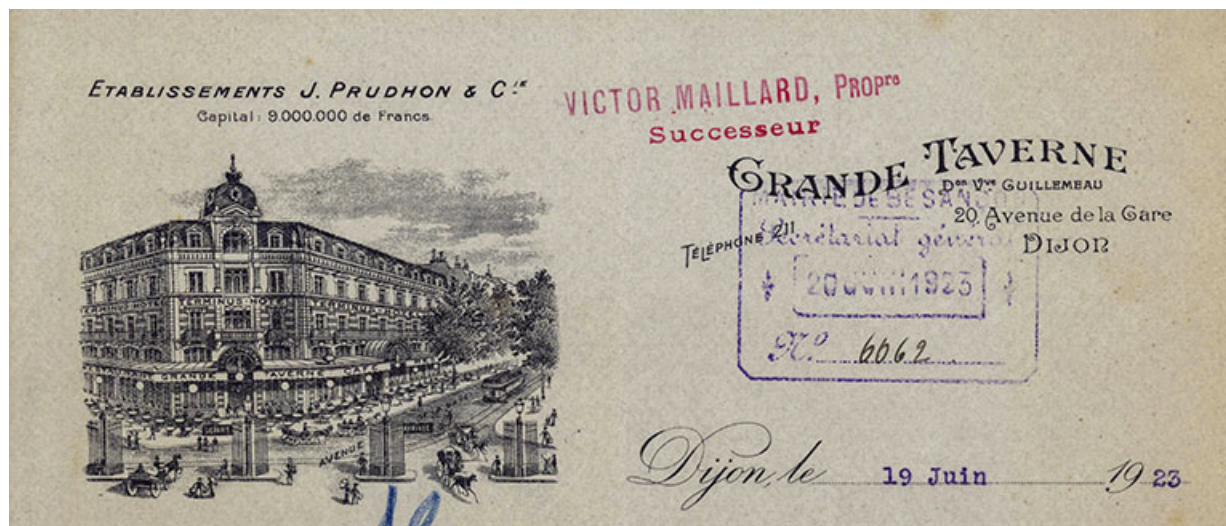 ETABLISSEMENTS J. PRUDHON & Cie
Capital: 9.000.000 de Francs
VICTOR MAILLARD, PROPre
Successeur
GRANDE TAVERNE
Don Vve GUILLEMEAU
20, Avenue de la Gare
TÉLÉPHONE 211
DIJON
MAIRIE DE BESANÇON
Secrétariat général
20 JUIN 1923
No. 6062
TERMINUS-HOTEL TERMINUS-HOTEL
GRANDE TAVERNE CAFÉ
DÉPART
ARRIVÉE
AVENUE
Dijon, le 19 Juin 1923